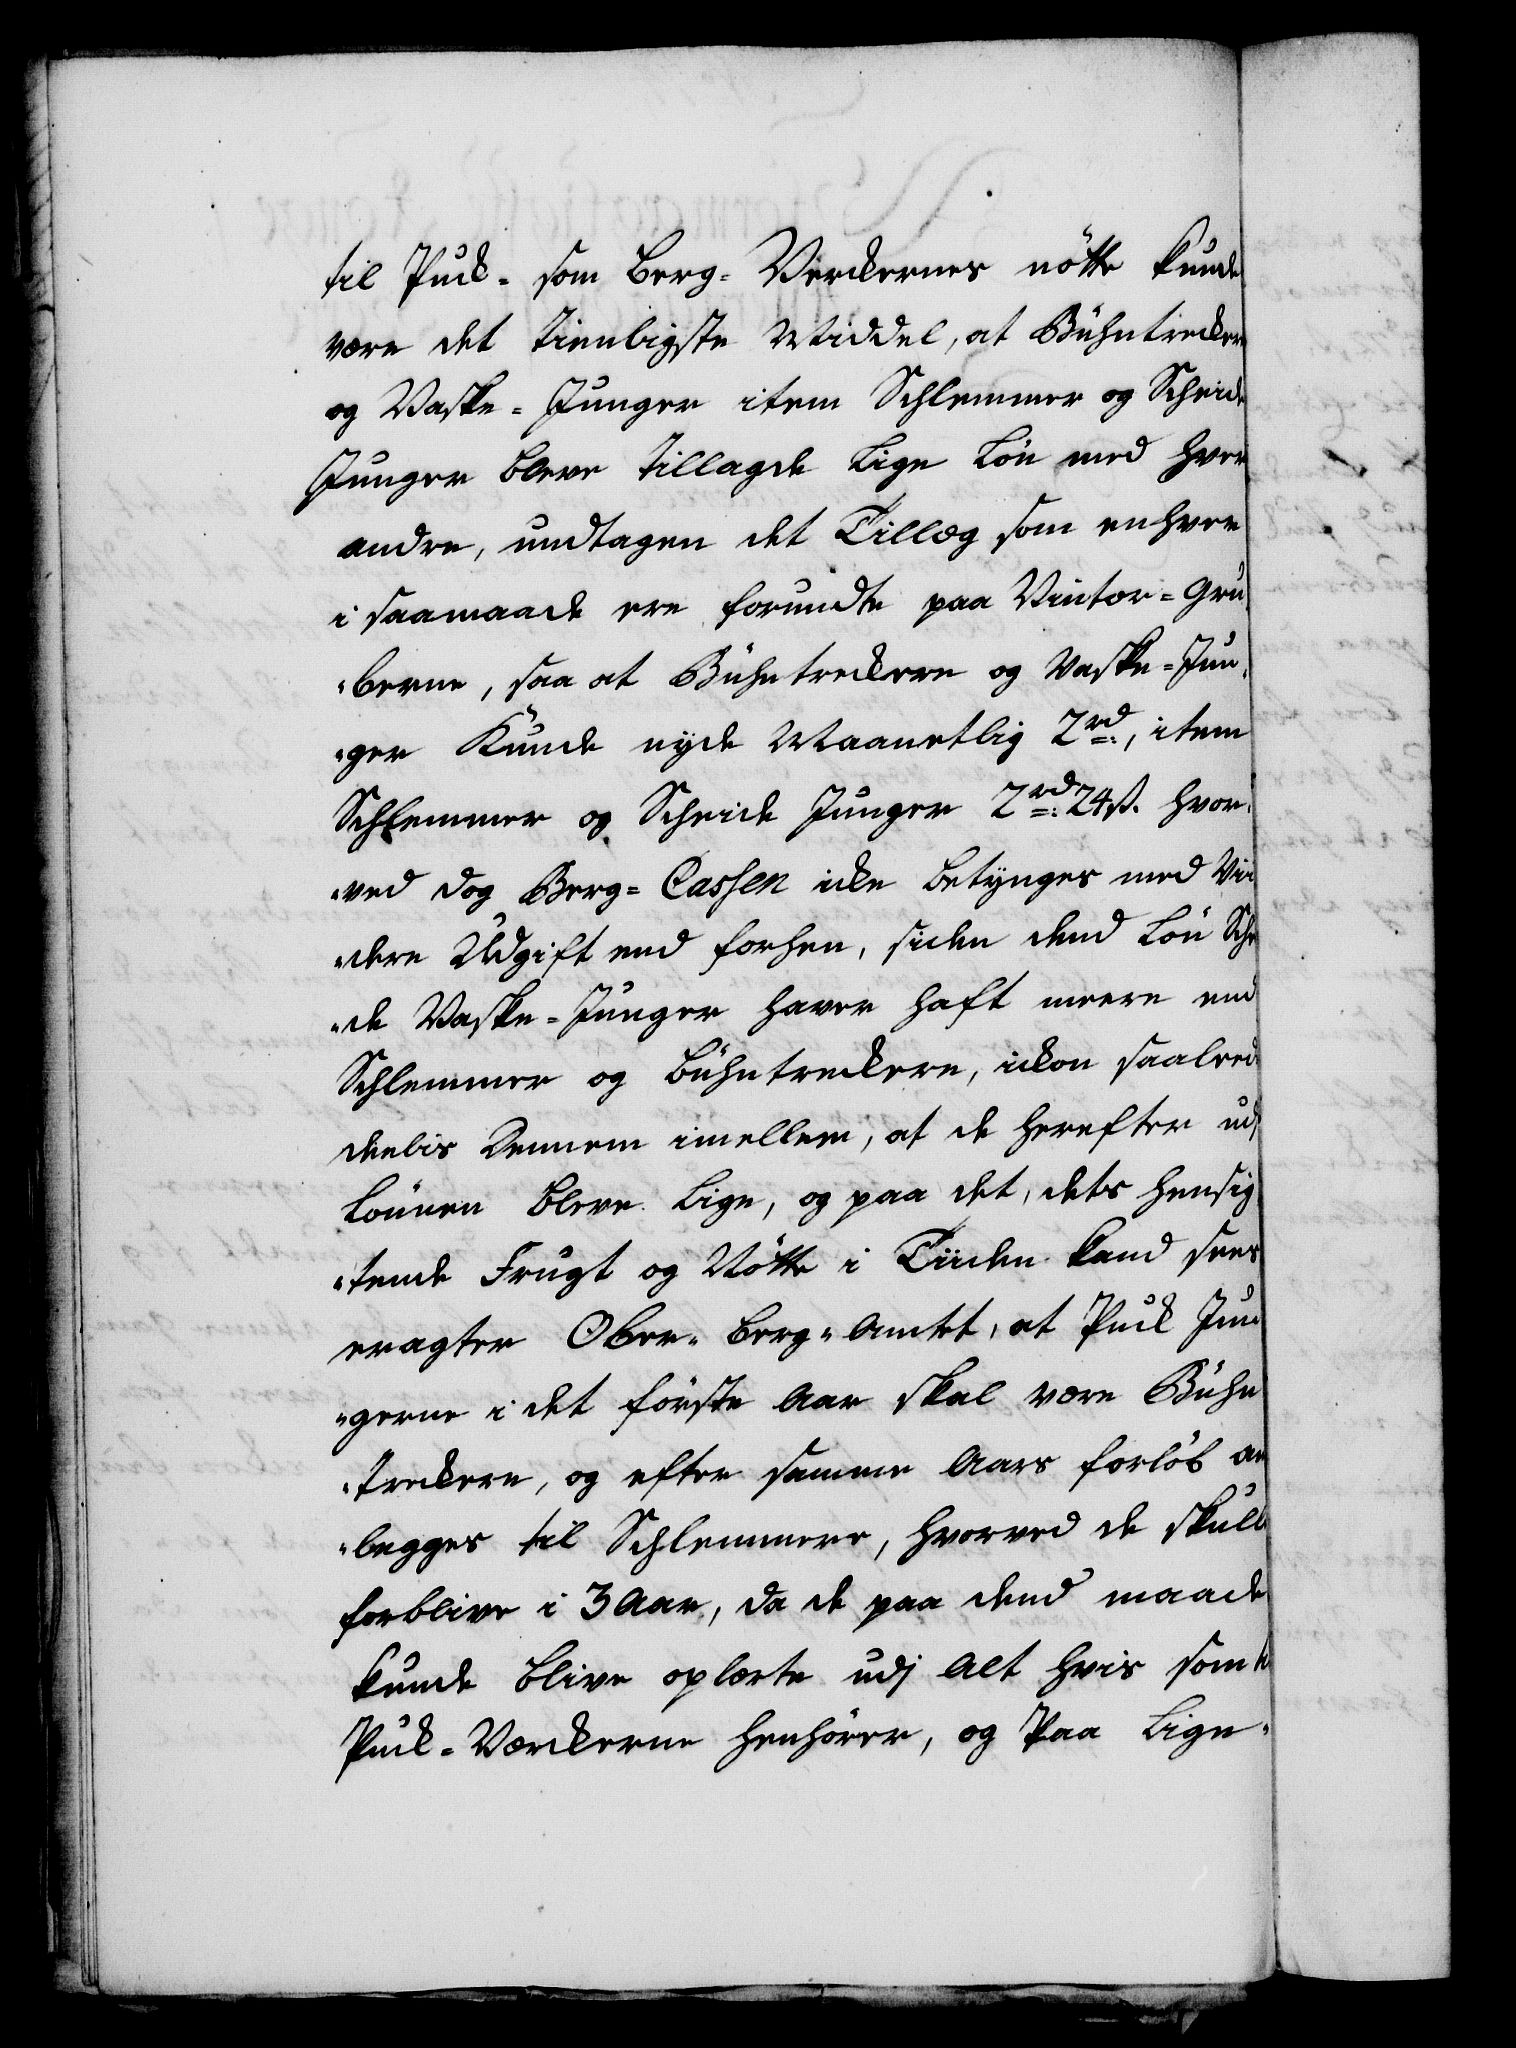 til Puck- som Berg-Verckernes nötte kunde
være det tienligste Middel, at Bühntreckere
og Vaske-Junger item Schlemmer og Scheide
Junger bleve tillagde lige Lön med hver
andre, undtagen det Tillæg som enhver
i saamaade ere forundte paa Vinter-Gru
"berne, saa at Bühntreckere og Vaske-Jun
"ger Kunde nyde Maanetlig 2 rd:, item
Schlemmer og Scheide Junger 2 rd: 24 ß. hvor
"ved dog Berg-Cassen icke betynges med Vii
"dere Udgift end forhen, siden dend Lön Sche
"de Vaske-Junger haver haft meere end
Schlemmer og Bühntreckere, ickon saaled
deelis Dennem imellem, at de herefter udj
Lönnen bleve lige, og paa det, dets hensig
"tende Frugt og Nötte i Tiiden kand sees
eragter Ober-Berg-Amtet, at Puck Jun
"gerne i det förste Aar skal være Bühn
"treckere, og efter samme Aars forlöb an
"legges til Schlemmere, hvorved de skulle
forblive i 3 Aar, da de paa dend maade
kunde blive oplærte udj Alt hvis som til
Puck-Værckerne henhörer, og Paa Lige-